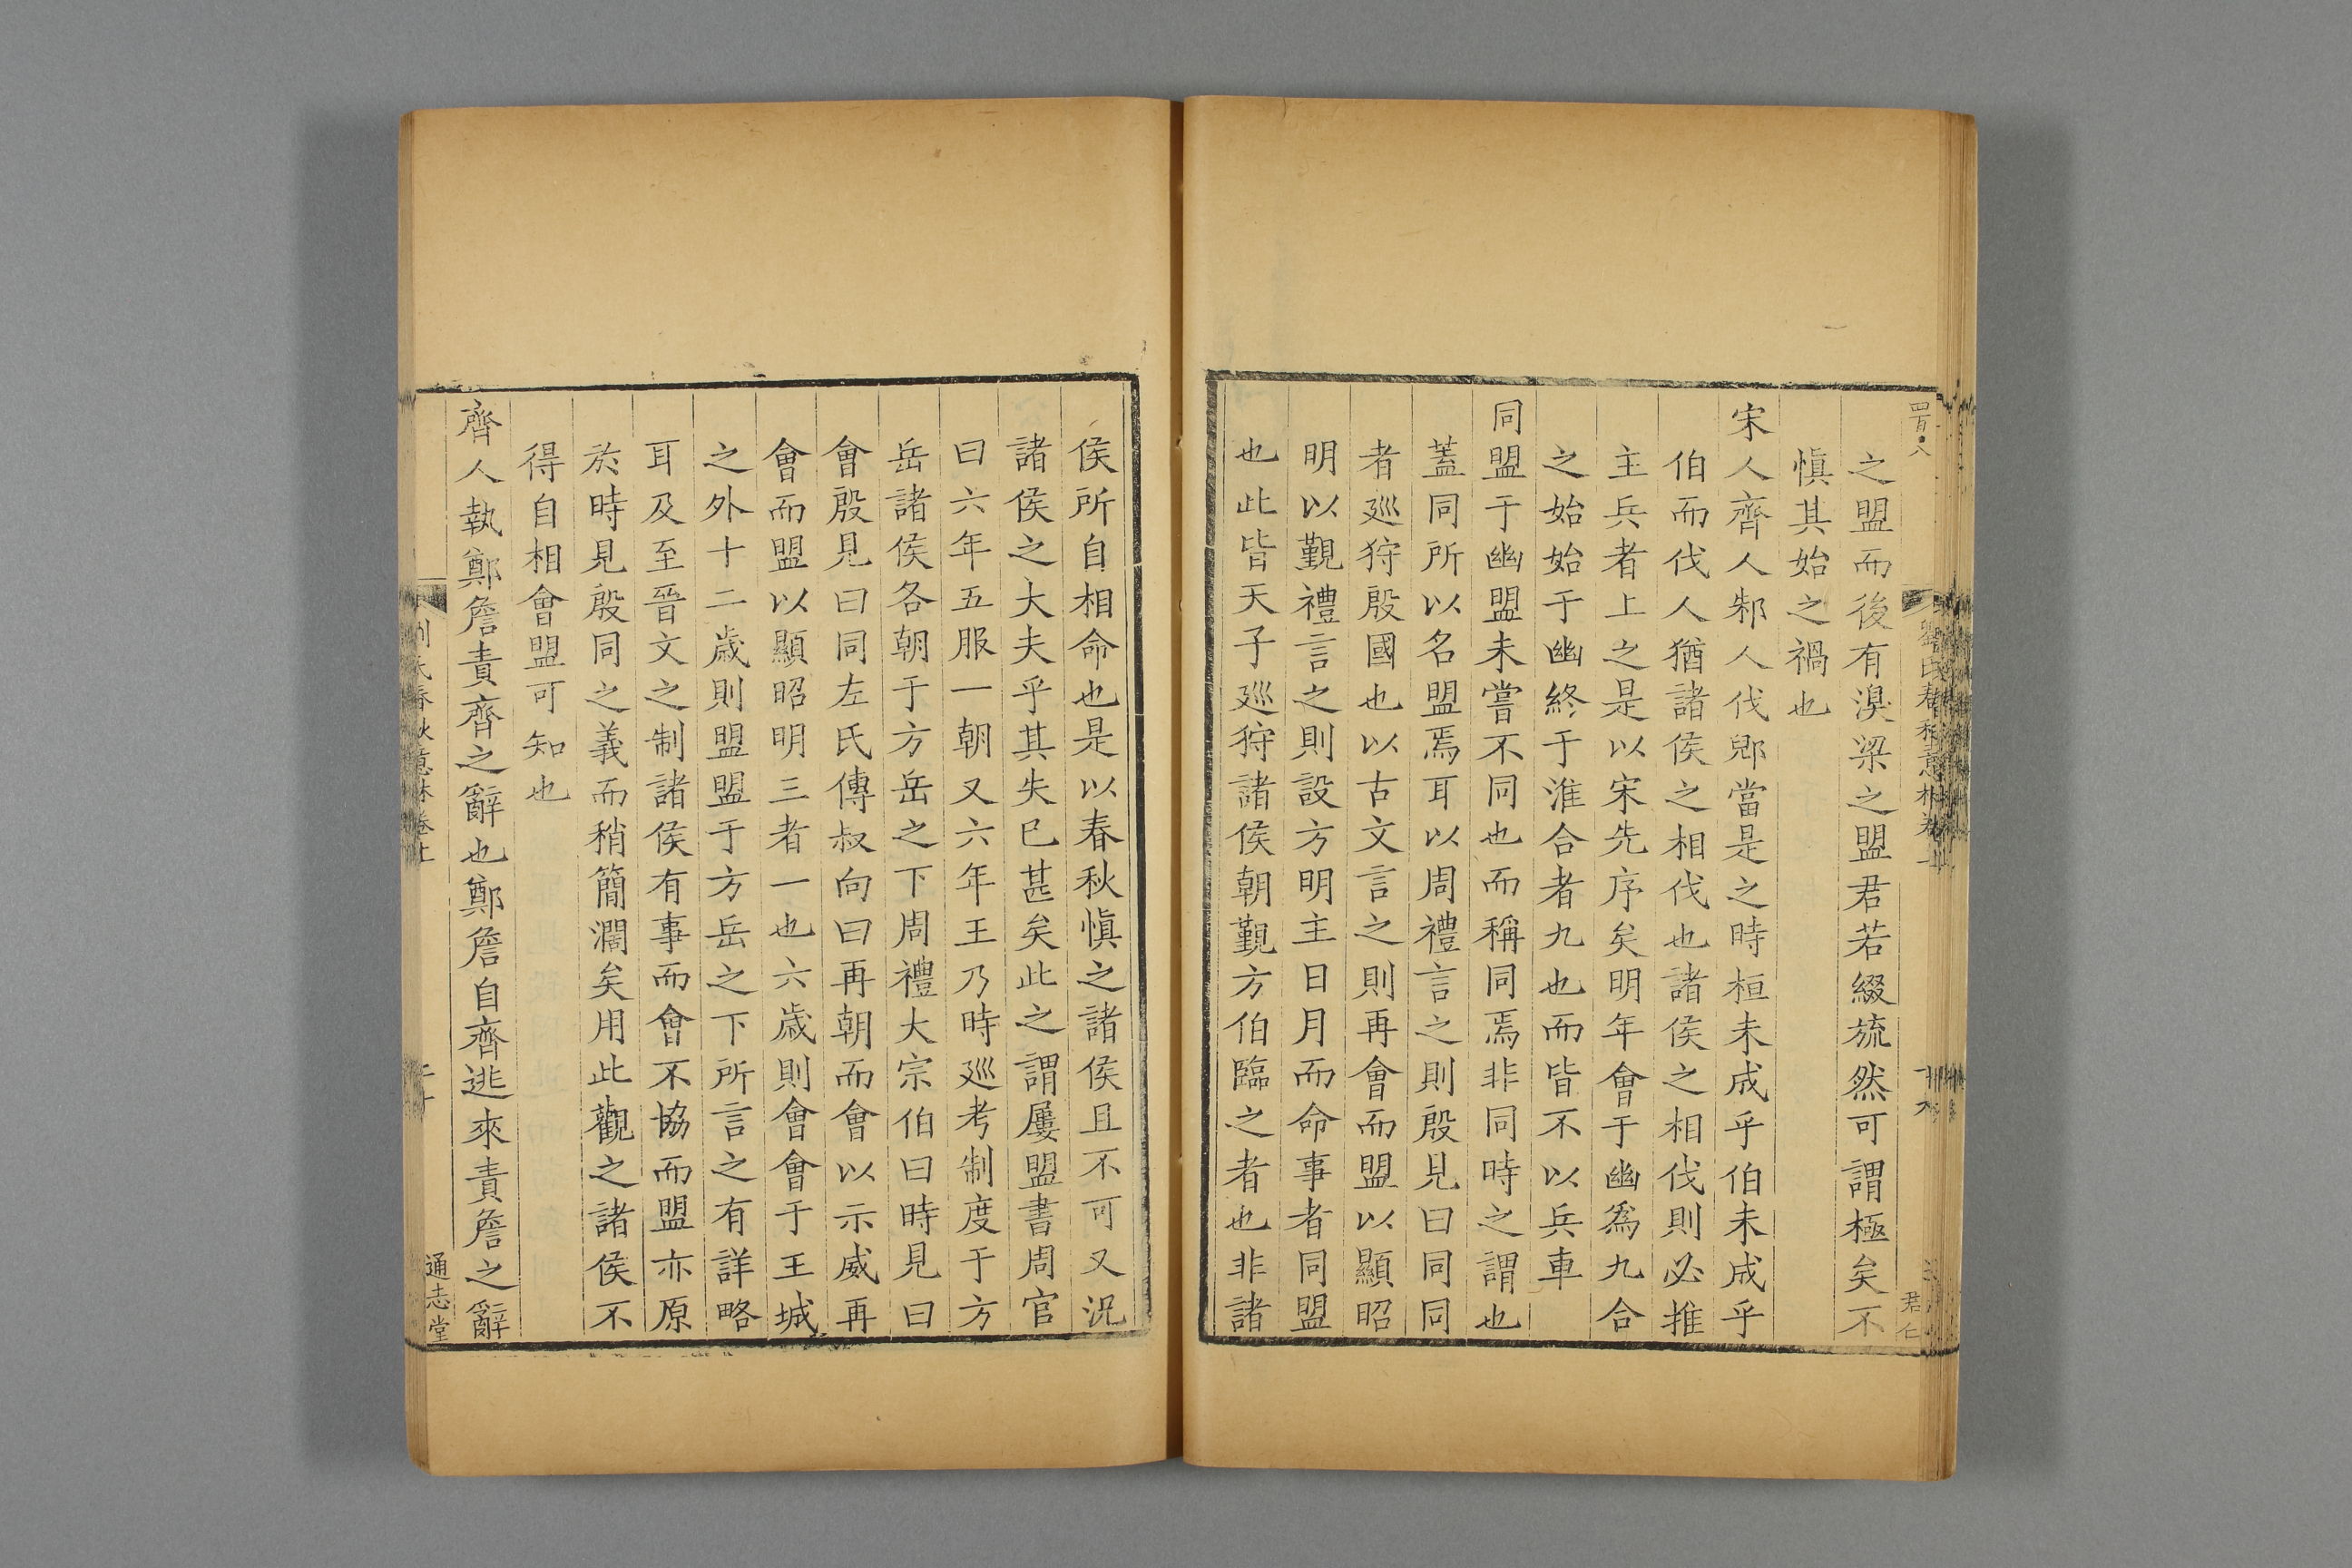 之盟而後有湨梁之盟君若綴旒然可謂極矣不
慎其始之禍也
宋人齊人邾人伐郳當是之時桓未成乎伯未成乎
伯而伐人猶諸侯之相伐也諸侯之相伐則必推
主兵者上之是以宋先序矣明年會于幽為九合
之始始于幽終于淮合者九也而皆不以兵車
同盟于幽盟未嘗不同也而稱同焉非同時之謂也
蓋同所以名盟焉耳以周禮言之則殷見曰同同
者廵狩殷國也以古文言之則再會而盟以顯昭
明以覲禮言之則設方明主日月而命事者同盟
也此皆天子廵狩諸侯朝覲方伯臨之者也非諸
侯所自相命也是以春秋慎之諸侯且不可又況
諸侯之大夫乎其失已甚矣此之謂屢盟書周官
曰六年五服一朝又六年王乃時廵考制度于方
岳諸侯各朝于方岳之下周禮大宗伯曰時見曰
會殷見曰同左氏傳叔向曰再朝而會以示威再
會而盟以顯昭明三者一也六歲則會會于王城
之外十二歲則盟盟于方岳之下所言之有詳略
耳及至晉文之制諸侯有事而會不協而盟亦原
於時見殷同之義而稍簡濶矣用此觀之諸侯不
得自相會盟可知也
齊人執鄭詹責齊之辭也鄭詹自齊逃來責詹之辭
劉氏春秋意林卷上
通志堂
君仁